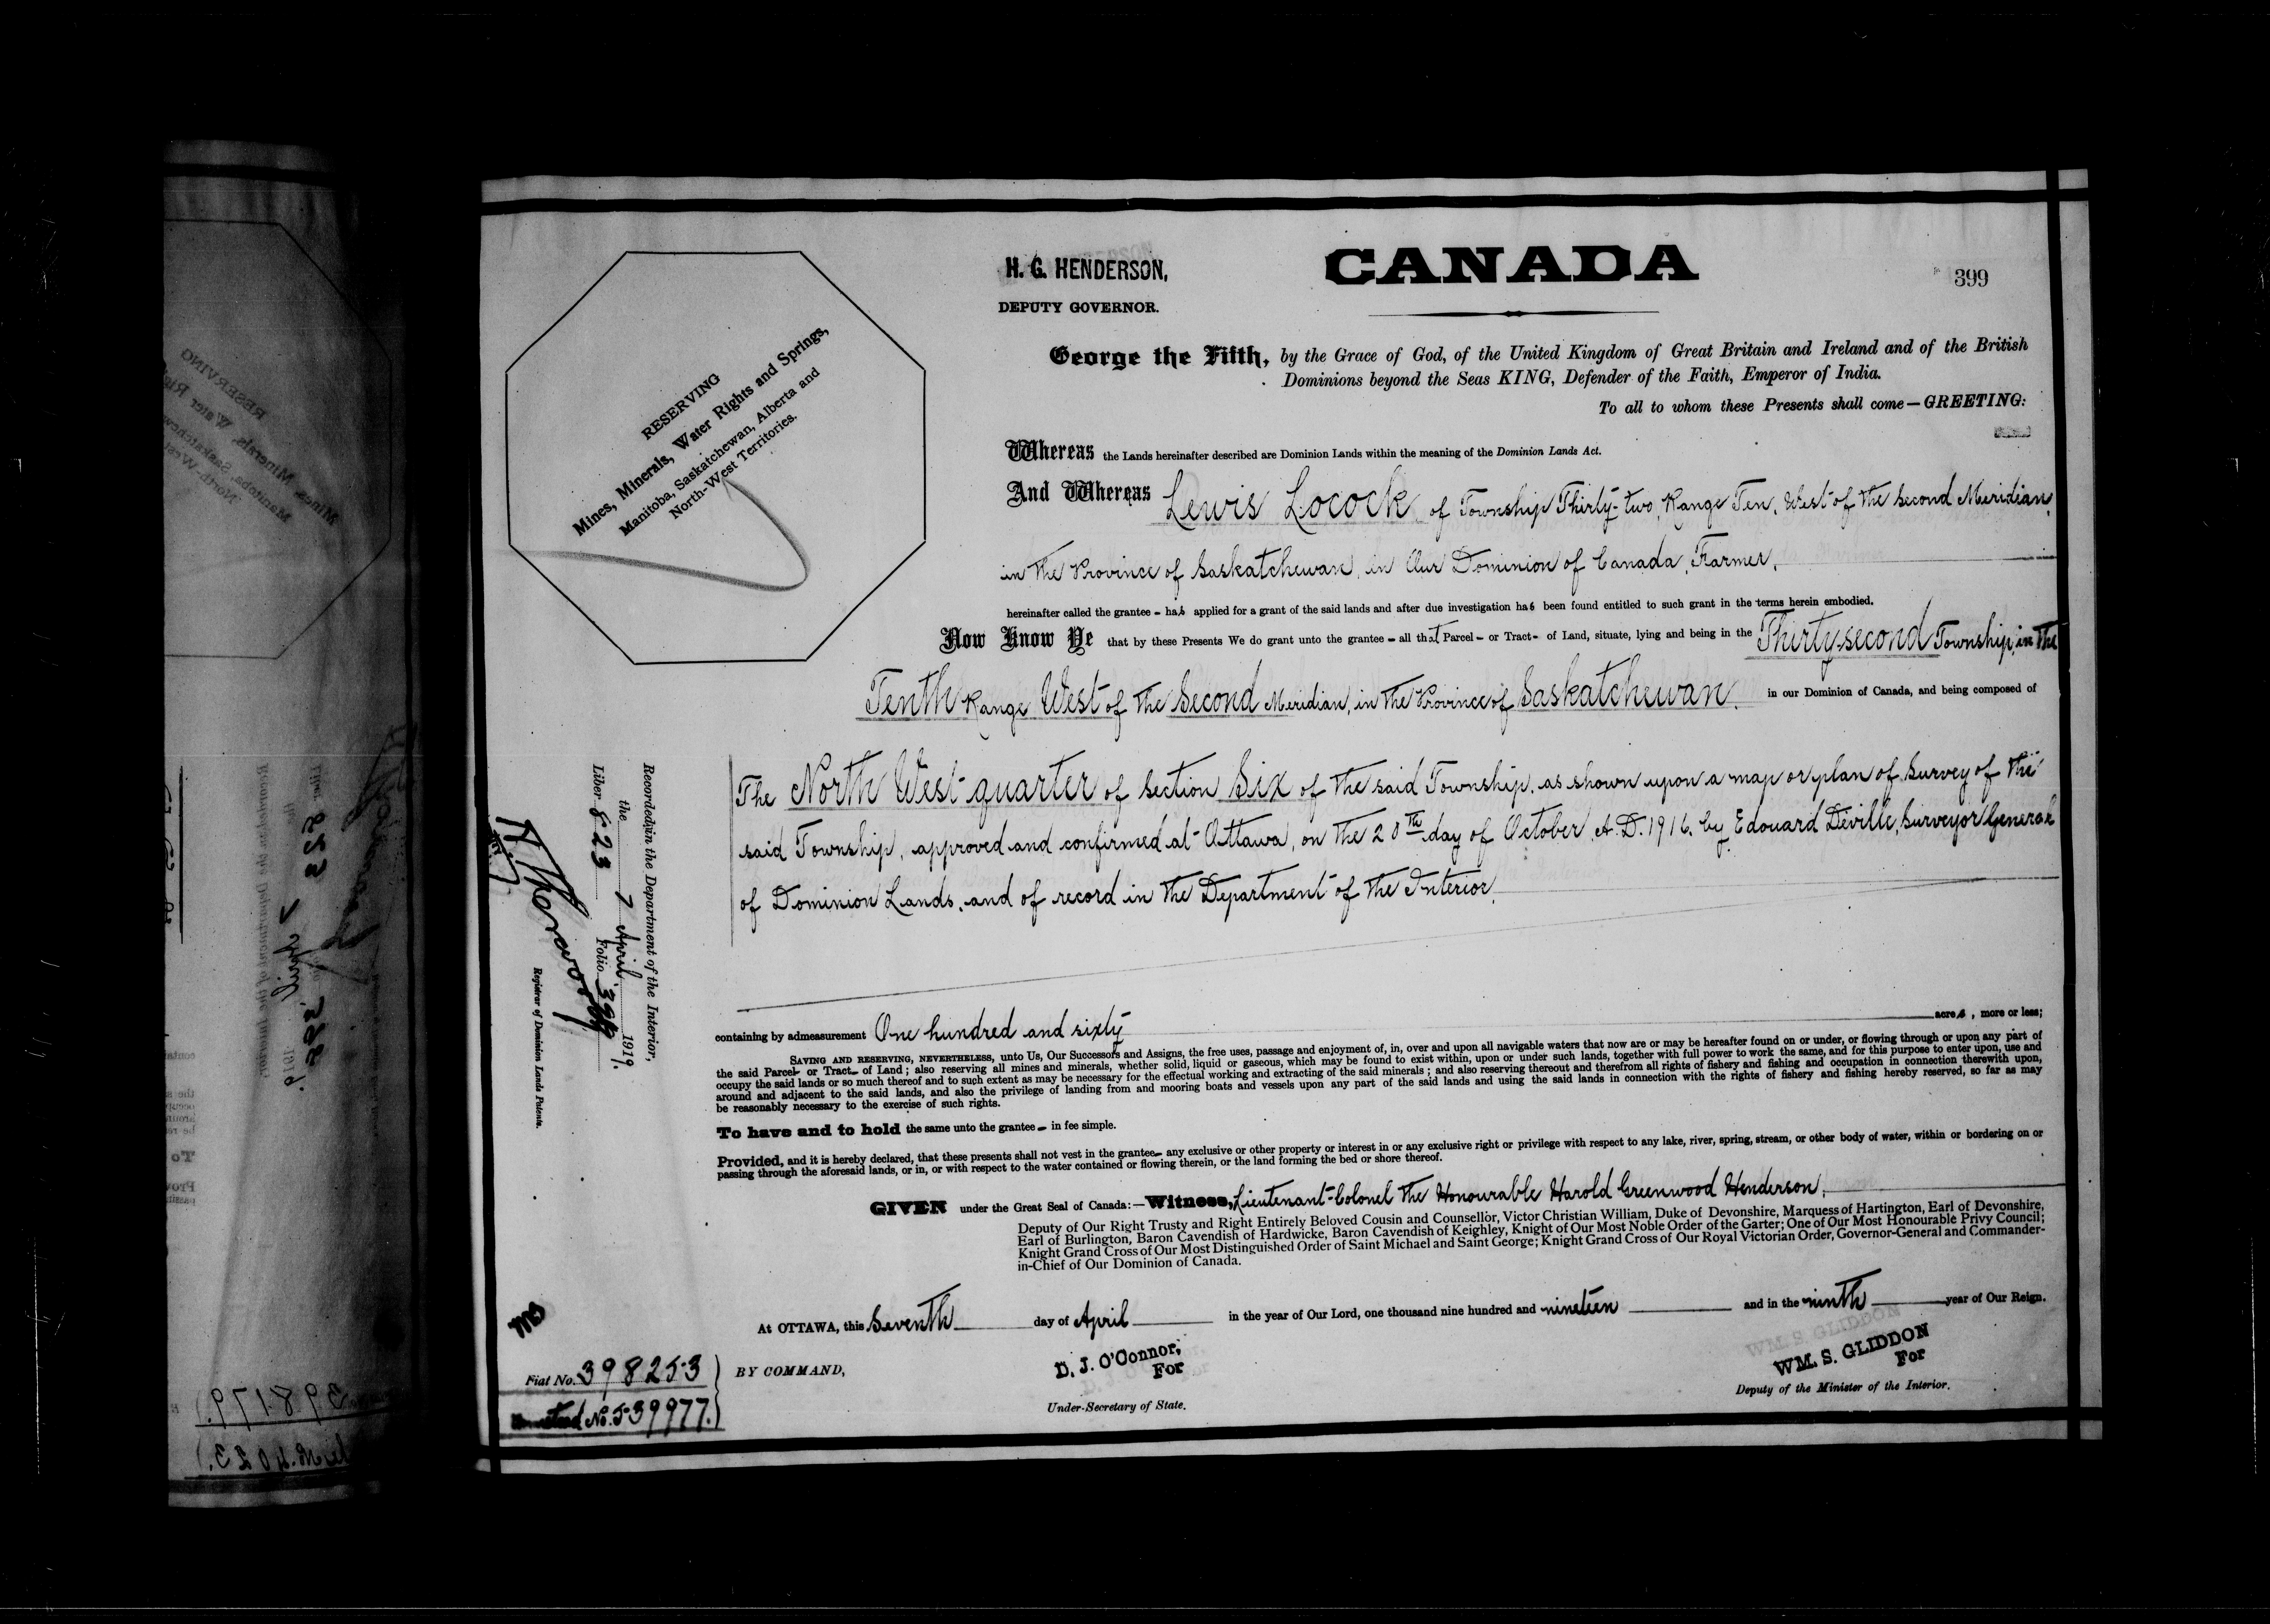 H. G. HENDERSON,
DEPUTY GOVERNOR.
CANADA
399
RESERVING
Mines, Minerals, Water Rights and Springs,
Manitoba, Saskatchewan, Alberta and
North-West Territories.
George the Fifth, by the Grace of God, of the United Kingdom of Great Britain and Ireland and of the British
Dominions beyond the Seas KING, Defender of the Faith, Emperor of India.
To all to whom these Presents shall come—GREETING:
Whereas the Lands hereinafter described are Dominion Lands within the meaning of the Dominion Lands Act.
And Whereas Lewis Locock of Township Thirty-two, Range Ten, West of the Second Meridian,
in the Province of Saskatchewan, in Our Dominion of Canada, Farmer,
hereinafter called the grantee - has applied for a grant of the said lands and after due investigation has been found entitled to such grant in the terms herein embodied.
Now Know Ye that by these Presents We do grant unto the grantee - all that Parcel - or Tract - of Land, situate, lying and being in the Thirty-second Township, in the
Tenth Range West of the Second Meridian, in the Province of Saskatchewan, in our Dominion of Canada, and being composed of
The North West quarter of Section Six of the said Township, as shown upon a map or plan of Survey of the
said Township, approved and confirmed at Ottawa, on the 20th day of October, A.D. 1916, by Edouard Deville, Surveyor General
of Dominion Lands, and of record in the Department of the Interior,
containing by admeasurement One hundred and sixty acres, more or less;
SAVING AND RESERVING, NEVERTHELESS, unto Us, Our Successors and Assigns, the free uses, passage and enjoyment of, in, over and upon all navigable waters that now are or may be hereafter found on or under, or flowing through or upon any part of
the said Parcel- or Tract- of Land; also reserving all mines and minerals, whether solid, liquid or gaseous, which may be found to exist within, upon or under such lands, together with full power to work the same, and for this purpose to enter upon, use and
occupy the said lands or so much thereof and to such extent as may be necessary for the effectual working and extracting of the said minerals; and also reserving thereout and therefrom all rights of fishery and fishing and occupation in connection therewith upon,
around and adjacent to the said lands, and also the privilege of landing from and mooring boats and vessels upon any part of the said lands and using the said lands in connection with the rights of fishery and fishing hereby reserved, so far as may
be reasonably necessary to the exercise of such rights.
To have and to hold the same unto the grantee - in fee simple.
Provided, and it is hereby declared, that these presents shall not vest in the grantee- any exclusive or other property or interest in or any exclusive right or privilege with respect to any lake, river, spring, stream, or other body of water, within or bordering on or
passing through the aforesaid lands, or in, or with respect to the water contained or flowing therein, or the land forming the bed or shore thereof.
GIVEN under the Great Seal of Canada:—Witness, Lieutenant-Colonel the Honourable Harold Greenwood Henderson,
Deputy of Our Right Trusty and Right Entirely Beloved Cousin and Counsellor, Victor Christian William, Duke of Devonshire, Marquess of Hartington, Earl of Devonshire,
Earl of Burlington, Baron Cavendish of Hardwicke, Baron Cavendish of Keighley, Knight of Our Most Noble Order of the Garter; One of Our Most Honourable Privy Council;
Knight Grand Cross of Our Most Distinguished Order of Saint Michael and Saint George; Knight Grand Cross of Our Royal Victorian Order, Governor-General and Commander-
in-Chief of Our Dominion of Canada.
At OTTAWA, this Seventh day of April in the year of Our Lord, one thousand nine hundred and nineteen and in the ninth year of Our Reign.
BY COMMAND,
D. J. O'Connor,
For
Under-Secretary of State.
WM. S. GLIDDON
For
Deputy of the Minister of the Interior.
Recorded in the Department of the Interior,
the 7 April 1919.
Liber 823 Folio 399
Registrar of Dominion Lands Patents.
Fiat No. 398253
No. 539977.